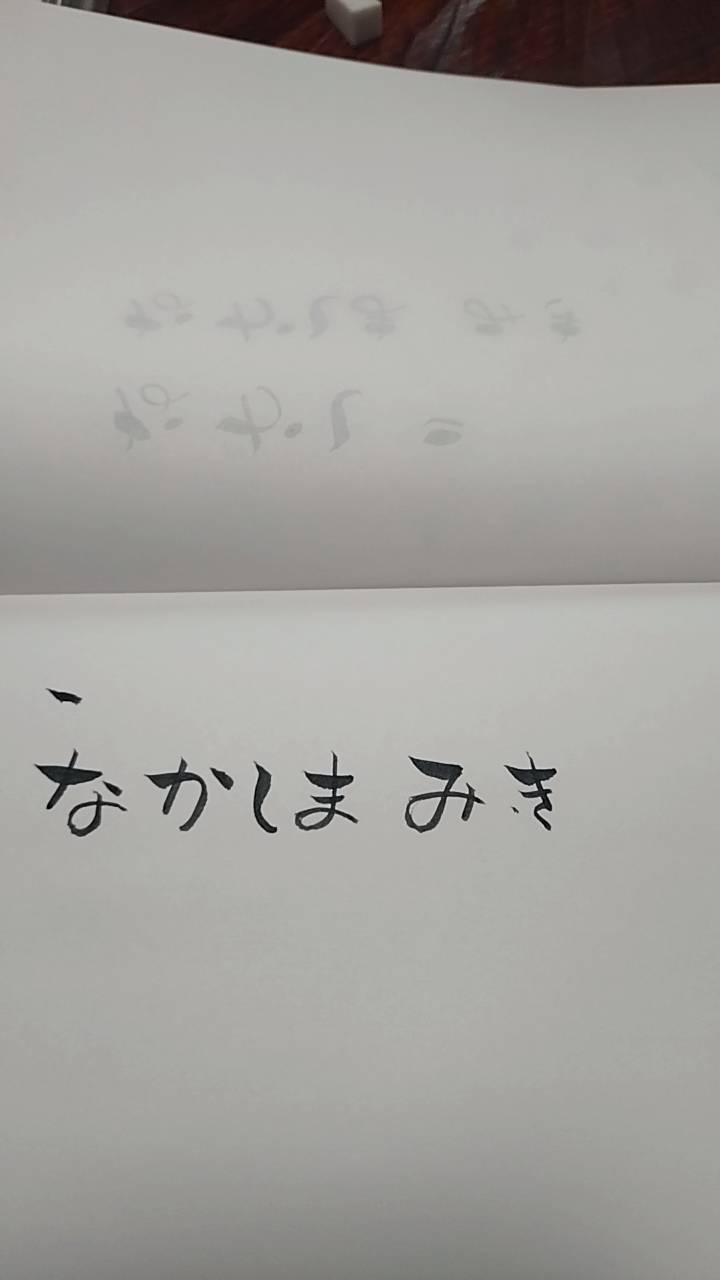 なかしま みき